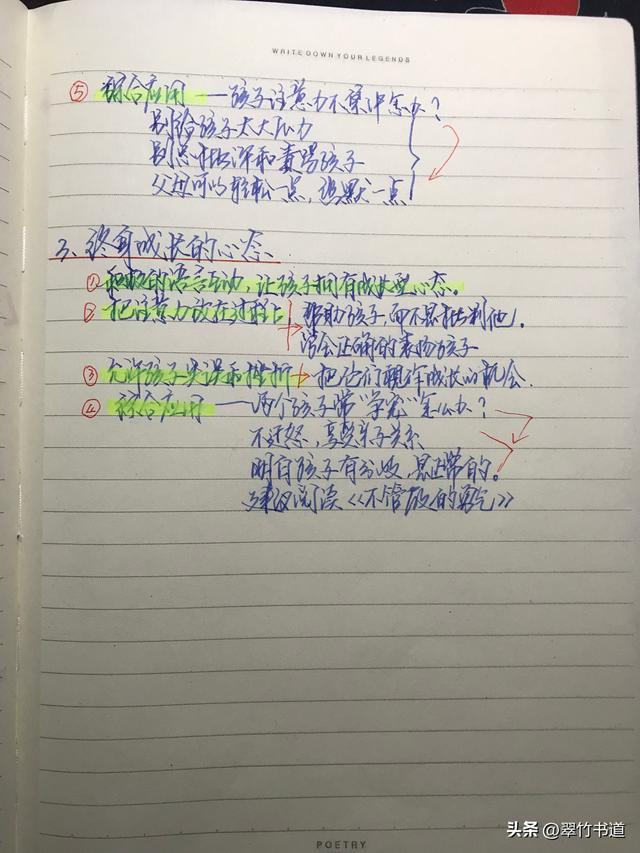 WRITE DOWN YOUR LEGENDS
⑤ 综合应用——孩子注意力不集中怎办?
别给孩子太大压力
别总批评和责骂孩子
父母可以轻松一点,幽默一点
3、终身成长的心态
① 积极的语言互动,让孩子拥有成长型心态。
② 把注意力放在过程上 帮助孩子,而不是批判他.
学会正确的表扬孩子
③ 允许孩子失误和挫折 把它们视作成长的机会.
④ 综合应用——两个孩子常"争宠"怎么办?
不迁怒,享受亲子关系
明白孩子有分歧,是正常的。
建议阅读《不管教的勇气》
POETRY
头条 @翠竹书道